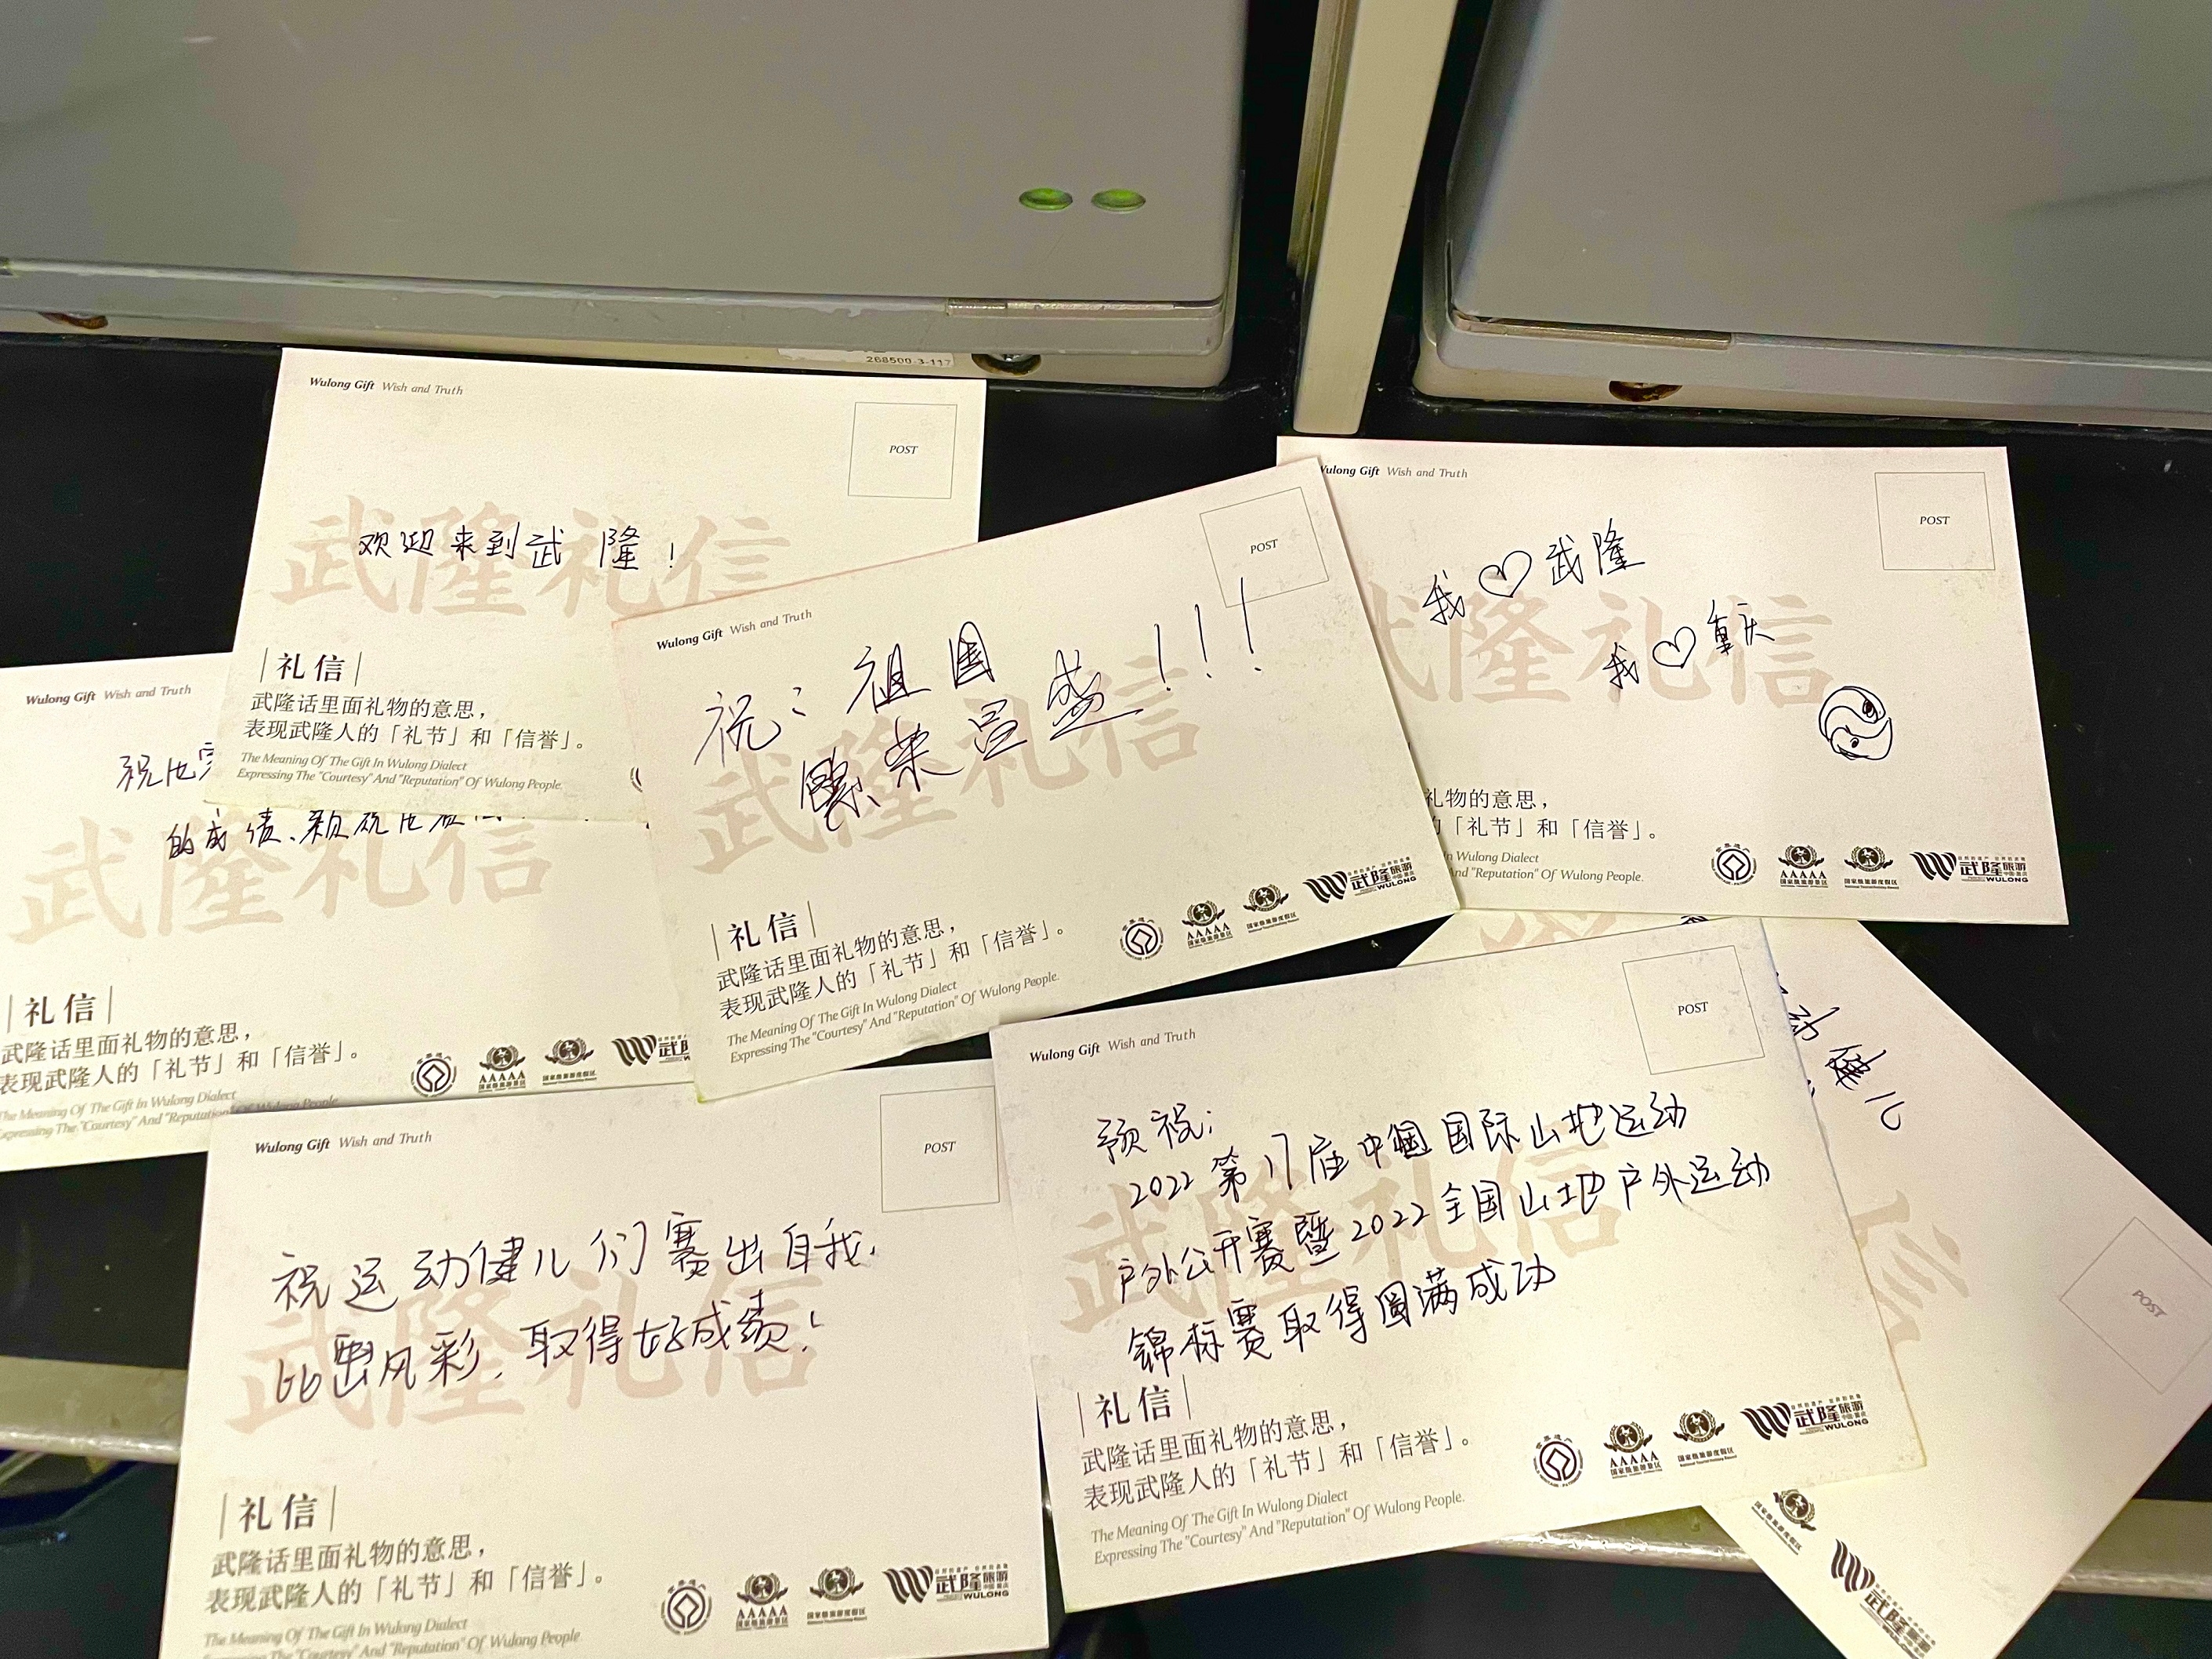 268500-3-117
Wulong Gift Wish and Truth
POST
武隆礼信
欢迎来到武隆!
|礼信|
武隆话里面礼物的意思，
表现武隆人的「礼节」和「信誉」。
The Meaning Of The Gift In Wulong Dialect
Expressing The "Courtesy" And "Reputation" Of Wulong People.
Wulong Gift Wish and Truth
POST
武隆礼信
祝: 祖国
繁荣昌盛!!!
|礼信|
武隆话里面礼物的意思，
表现武隆人的「礼节」和「信誉」。
The Meaning Of The Gift In Wulong Dialect
Expressing The "Courtesy" And "Reputation" Of Wulong People.
AAAAA
国家级旅游景区
国家级旅游度假区
武隆旅游
WULONG
Wulong Gift Wish and Truth
POST
武隆礼信
我♡武隆
我♡重庆
礼物的意思，
「礼节」和「信誉」。
In Wulong Dialect
And "Reputation" Of Wulong People.
AAAAA
国家级旅游景区
国家级旅游度假区
武隆旅游
WULONG
Wulong Gift Wish and Truth
武隆礼信
祝
的成绩、
|礼信|
武隆话里面礼物的意思，
表现武隆人的「礼节」和「信誉」。
The Meaning Of The Gift In Wulong Dialect
Expressing The "Courtesy" And "Reputation" Of Wulong People.
AAAAA
国家级旅游景区
国家级旅游度假区
武隆
Wulong Gift Wish and Truth
POST
武隆礼信
祝运动健儿们赛出自我,
比出风彩,取得好成绩!
|礼信|
武隆话里面礼物的意思，
表现武隆人的「礼节」和「信誉」。
The Meaning Of The Gift In Wulong Dialect
Expressing The "Courtesy" And "Reputation" Of Wulong People
AAAAA
国家级旅游景区
国家级旅游度假区
武隆旅游
WULONG
Wulong Gift Wish and Truth
POST
武隆礼信
预祝:
2022第17届中国国际山地运动
户外公开赛暨2022全国山地户外运动
锦标赛取得圆满成功
|礼信|
武隆话里面礼物的意思，
表现武隆人的「礼节」和「信誉」。
The Meaning Of The Gift In Wulong Dialect
Expressing The "Courtesy" And "Reputation" Of Wulong People.
AAAAA
国家级旅游景区
国家级旅游度假区
武隆旅游
WULONG
动健儿
信
POST
国家级旅游度假区
武隆旅游
WULONG